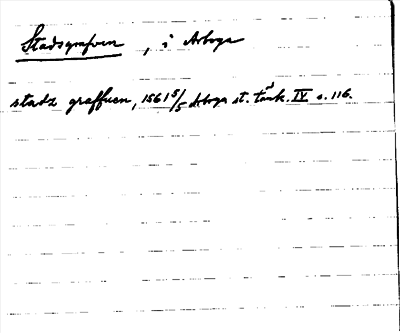 Stadsgraven, i Arboga
stadz graffuen, 1561 5/5 Arboga st. tänk. IV s. 116.